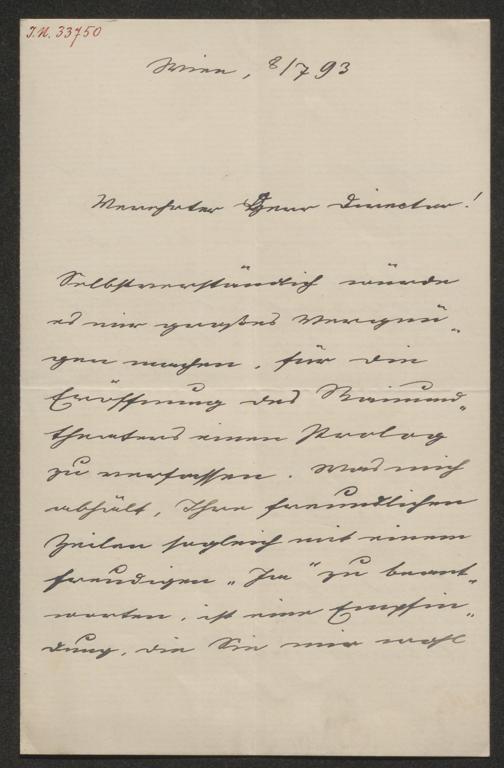 I.N. 33750
Wien, 8/7 93
Verehrter Herr Director!
Selbstverständlich würde
es mir großes Vergnü-
gen machen, für die
Eröffnung des Raimund-
theaters einen Prolog
zu verfassen. Was mich
abhält, Ihre freundlichen
Zeilen sogleich mit einem
freudigen „Ja" zu beant-
worten, ist eine Empfin-
dung, die Sie mir wohl